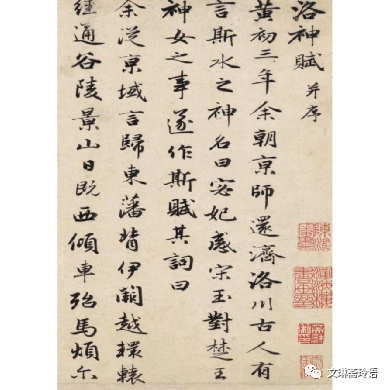 洛神賦 并序
黃初三年余朝京師還濟洛川古人有
言斯水之神名曰宓妃感宋玉對楚王
神女之事遂作斯賦其詞曰
余從京域言歸東藩背伊闕越轘轅
經通谷陵景山日既西傾車殆馬煩尓
文琳斋玲语